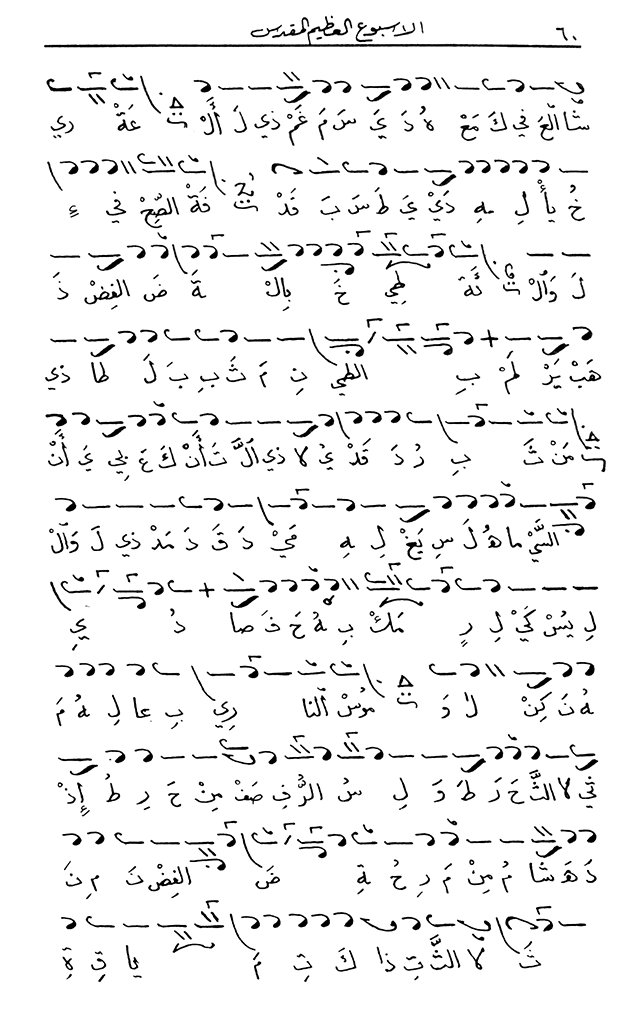 ٦٠ الاسبوع العظيم المقدس
شَا الْعَ فِي كَ مَعْ هُ دَ يَ سَ مَ غَمْ ذي لَ أَلْ عَةْ ري
خُ يأْ لِ هِ دَيْ يَ طَ سَ بَ قَدْ فَةْ الصِحْ في ءِ
لَ وَالْ ئَةْ طِي خَ بِالْ ةَ ضَ الفِضْ ذَ
هَبْ يَرْ لَمْ بِ الطي نِ مَ ثَ بِ بَ لَ طا ذي
مَنْ ثَ بِ رُ دَ قَدْ يُ لا ذي الَّ تَ أَنْ كَ عَ لي يَ أَنْ
السَّيْ ما هُ لَ سِ يَغْ لِ هِ مَيْ دَ قَ دَ مَدْ ذي لَ وَالْ
لِ يُسْ كَيْ لِ رٍ مَكْ بِ هُ حَ فَ صا دُ يِ
هُ نَ كِنْ لا وَ مُوْسْ النا ري بِ عا لِ هُ مَ
ثي لا الثَّ حَ رَ طَ وَ لِ سُ الرُّ فِ صَفْ مِنْ حَ رِ طُ إِذْ
دَ هَ شَا مُ مِنْ مَ رِ حُ ةِ ضَ الفِضْ نَ مِ نَ
ثَ لا الثَّ تِ ذا كَ تِ مَ يا قِ ةِ